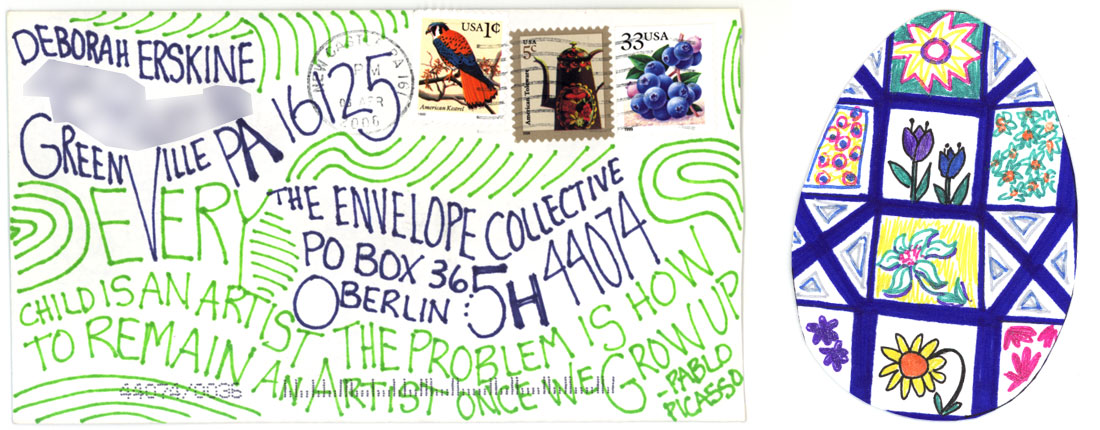 DEBORAH ERSKINE
GREENVILLE PA 16125
NEW CASTLE PA 161
PM
APR
2006
USA 1¢
American Kestrel
USA
5¢
American Toleware
33USA
THE ENVELOPE COLLECTIVE
PO BOX 365
OBERLIN OH 44074
EVERY
CHILD IS AN ARTIST THE PROBLEM IS HOW
TO REMAIN AN ARTIST ONCE WE GROW UP
-PABLO
PICASSO
44074/0036